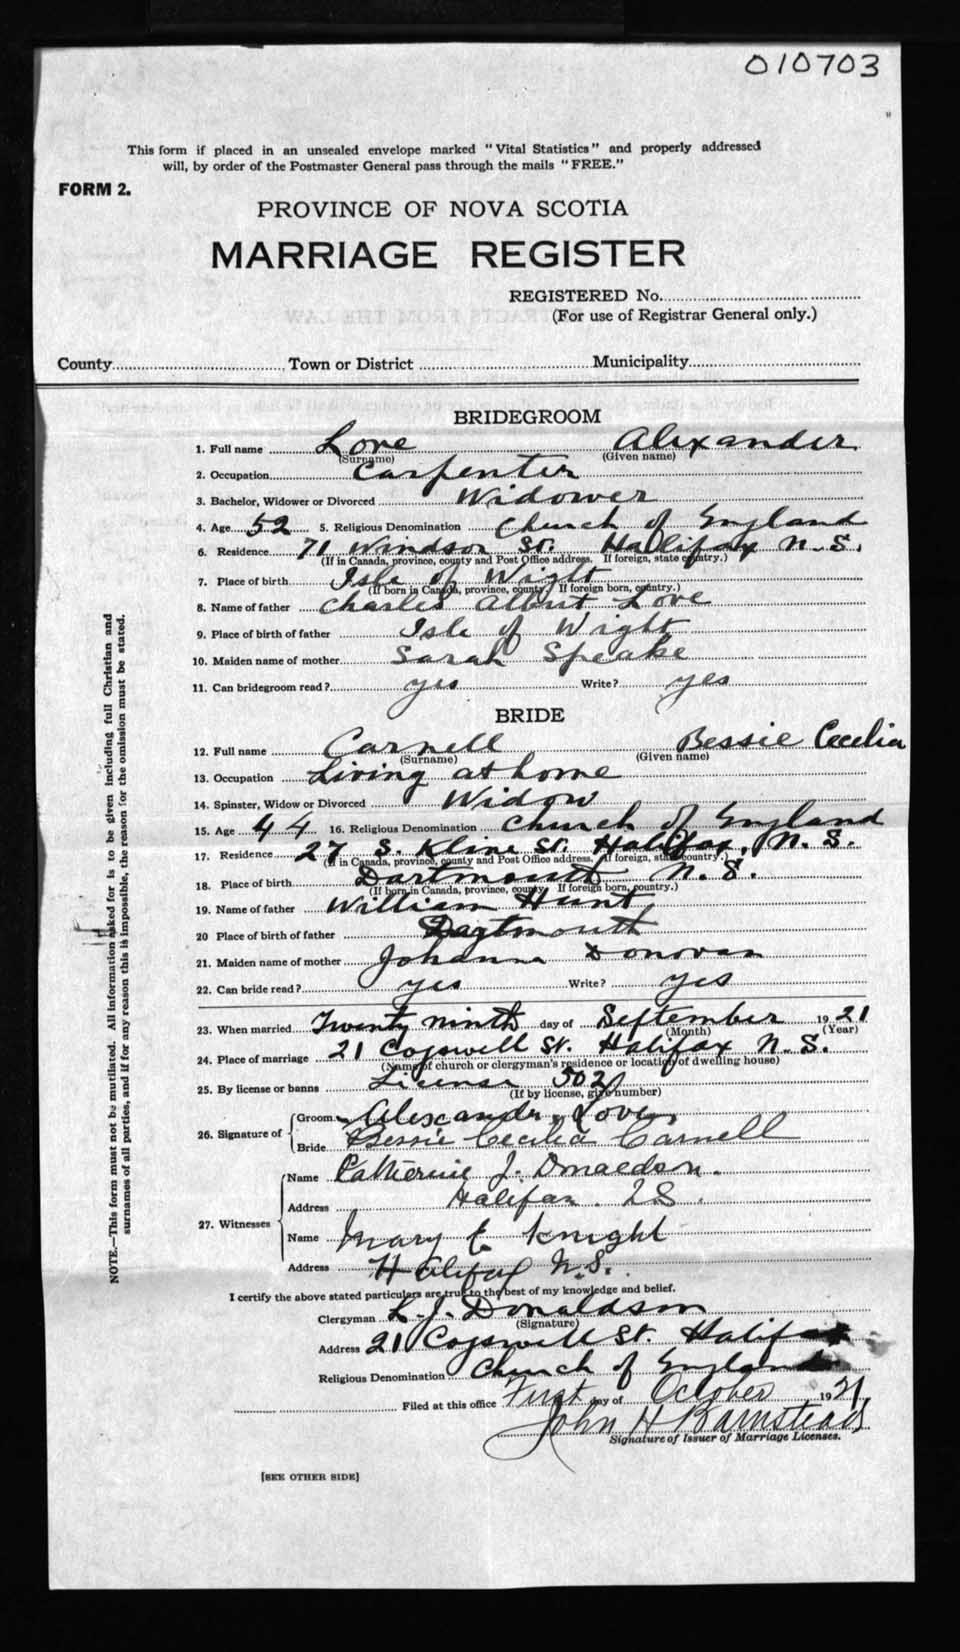 010703
This form if placed in an unsealed envelope marked "Vital Statistics" and properly addressed
will, by order of the Postmaster General pass through the mails "FREE."
FORM 2.
PROVINCE OF NOVA SCOTIA
MARRIAGE REGISTER
REGISTERED No.
(For use of Registrar General only.)
County Town or District Municipality
BRIDEGROOM
1. Full name Love Alexander
(Surname) (Given name)
2. Occupation Carpenter
3. Bachelor, Widower or Divorced Widower
4. Age 52 5. Religious Denomination Church of England
6. Residence 71 Windsor St. Halifax N.S.
(If in Canada, province, county and Post Office address. If foreign, state country.)
7. Place of birth Isle of Wight
(If born in Canada, province, county. If foreign born, country.)
8. Name of father Charles Albert Love
9. Place of birth of father Isle of Wright
10. Maiden name of mother Sarah Speake
11. Can bridegroom read? yes Write? yes
BRIDE
12. Full name Carnell Bessie Cecilia
(Surname) (Given name)
13. Occupation Living at home
14. Spinster, Widow or Divorced Widow
15. Age 44 16. Religious Denomination Church of England
17. Residence 27 S. Kline St. Halifax, N.S.
(If in Canada, province, county and Post Office address, If foreign, state country.)
18. Place of birth Dartmouth N.S.
(If born in Canada, province, county. If foreign born, country.)
19. Name of father William Hunt
20 Place of birth of father Dartmouth
21. Maiden name of mother Johanna Donovan
22. Can bride read? yes Write? yes
23. When married Twenty ninth day of September 1921
(Month) (Year)
24. Place of marriage 21 Cogswell St. Halifax N.S.
(Name of church or clergyman's residence or location of dwelling house)
25. By license or banns License 502
(If by license, give number)
26. Signature of Groom Alexander Love
Bride Bessie Cecilia Carnell
27. Witnesses Name Catherine J. Donaldson.
Address Halifax
Name Mary E Knight
Address Halifax N.S.
I certify the above stated particulars are true to the best of my knowledge and belief.
Clergyman L.J. Donaldson
(Signature)
Address 21 Cogswell St. Halifax
Religious Denomination Church of England
Filed at this office First day of October 1921
John H Barnstead
Signature of Issuer of Marriage Licenses.
[SEE OTHER SIDE]
NOTE.—This form must not be mutilated. All information asked for is to be given including full Christian and
surnames of all parties, and if for any reason this is impossible, the reason for the omission must be stated.